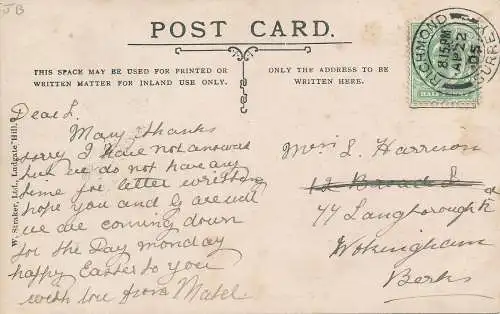 JB
POST CARD.
THIS SPACE MAY BE USED FOR PRINTED OR
WRITTEN MATTER FOR INLAND USE ONLY.
ONLY THE ADDRESS TO BE
WRITTEN HERE.
RICHMOND
8.15PM
AP 22
05
SURREY
HALF
W. Straker, Ltd., Ludgate Hill.
Dear L.
Many thanks
sorry I have not answered
but we do not have any
time for letter writting
hope you and G are well
we are coming down
for the Day monday
happy Easter to you
with love from Mabel.
Miss L. Harrison
12 Broad S
44 Langborough Rd
Wokingham
Berks